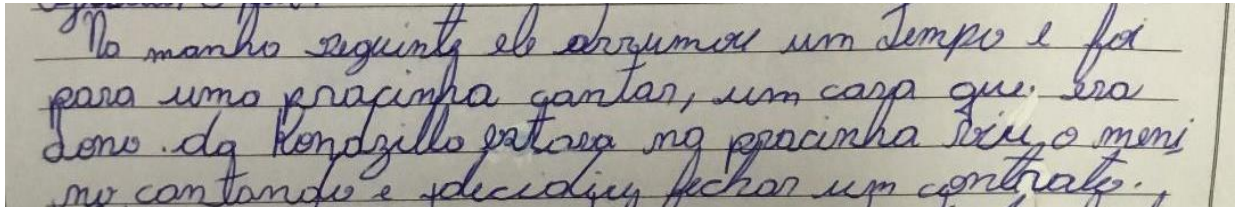 Na manhã seguinte ele arrumou um tempo e foi
para uma pracinha cantar, um cara que era
dono da Kondzilla estava na pracinha viu o meni
no cantando e decidiu fechar um contrato.